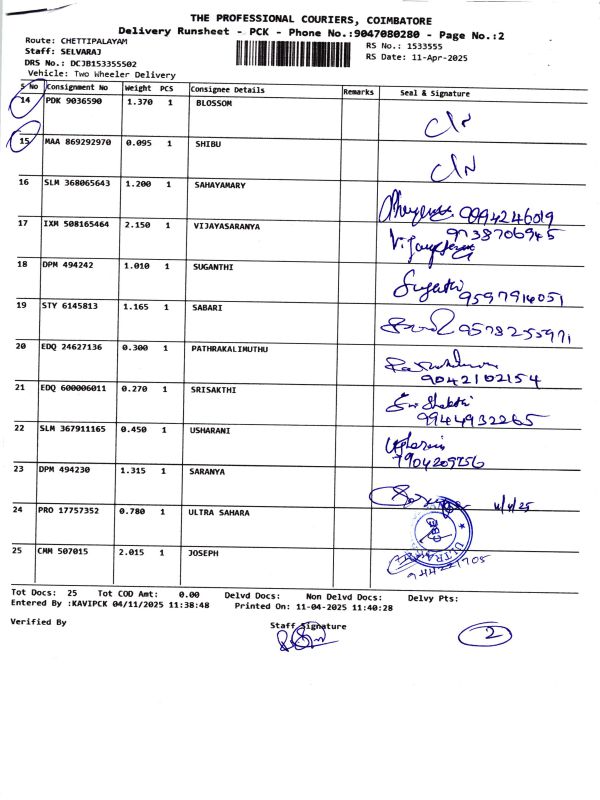 THE PROFESSIONAL COURIERS, COIMBATORE
Delivery Runsheet - PCK - Phone No.:9047080280 - Page No.:2
Route: CHETTIPALAYAM
RS No.: 1533555
Staff: SELVARAJ
RS Date: 11-Apr-2025
DRS No.: DCJB153355502
Vehicle: Two Wheeler Delivery
S No Consignment No Weight PCS Consignee Details Remarks Seal & Signature
14 PDK 9036590 1.370 1 BLOSSOM
15 MAA 869292970 0.095 1 SHIBU
16 SLM 368065643 1.200 1 SAHAYAMARY
9994246019
17 IXM 508165464 2.150 1 VIJAYASARANYA
9738706945
18 DPM 494242 1.010 1 SUGANTHI
Sugathi 9597914051
19 STY 6145813 1.165 1 SABARI
9578255971
20 EDQ 24627136 0.300 1 PATHRAKALIMUTHU
9042102154
21 EDQ 600006011 0.270 1 SRISAKTHI
Sri Shakthi
9944932265
22 SLM 367911165 0.450 1 USHARANI
7904209756
23 DPM 494230 1.315 1 SARANYA
11/4/25
24 PRO 17757352 0.780 1 ULTRA SAHARA
CBE
25 CMM 507015 2.015 1 JOSEPH
Tot Docs: 25 Tot COD Amt: 0.00 Delvd Docs: Non Delvd Docs: Delvy Pts:
Entered By :KAVIPCK 04/11/2025 11:38:48 Printed On: 11-04-2025 11:40:28
Verified By
Staff Signature
2